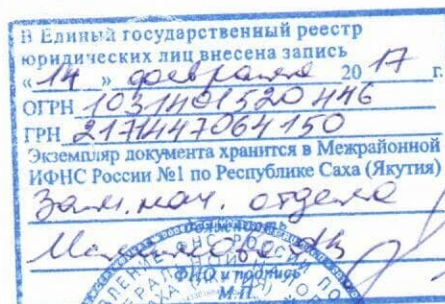 В Единый государственный реестр
юридических лиц внесена запись
«14» февраля 2017 г.
ОГРН 1031401520446
ГРН 2171447064150
Экземпляр документа хранится в Межрайонной
ИФНС России №1 по Республике Саха (Якутия)
Зам. нач. отдела
должность
ФИО и подпись
М.П.